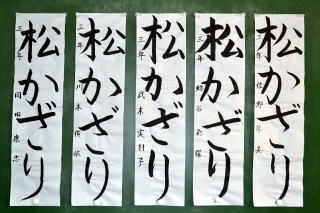 松かざり
三年 岡田康志
松かざり
三年 川本
松かざり
三年 武本実羽子
松かざり
三年 蛯谷彩羅
松かざり
三年 佐野琴美